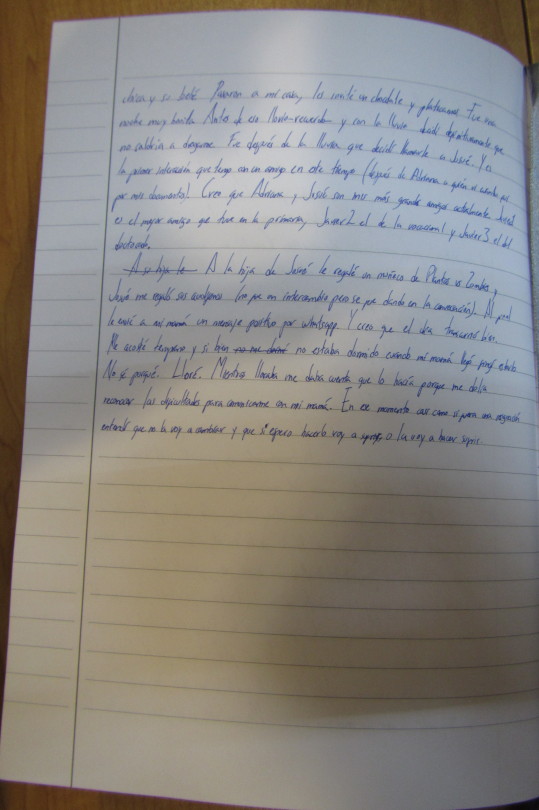 chica y su bebé. Pasaron a mi casa, los invité un chocolate y platicamos. Fue una
noche muy bonita. Antes de eso llovió-recuerdo y con la lluvia decidí definitivamente que
no saldría a drogarme. Fue después de la lluvia que decidí llamarle a Josué. Y es
la primer interacción que tengo con un amigo en este tiempo (después de Adriana a quién vi cuando fui
por mis documentos). Creo que Adriana y Josué son mis más grande amigos actualmente. Javier2
es el mejor amigo que tuve en la primaria, Javier2 el de la vocacional y Javier3 el del
doctorado.
A su hija le A la hija de Josué le regalé un muñeco de Plantas vs Zombies y
Josué me regaló sus audífonos (no fue un intercambio pero se fue dando en la conversación). Al final
le envié a mi mamá un mensaje positivo por whatsapp. Y creo que el día transcurrió bien.
Me acosté temprano y si bien no me dormí no estaba dormido cuando mi mamá llegó fingí estarlo.
No sé porqué. Lloré. Mientras lloraba me daba cuenta que lo hacía porque me dolía
reconocer las dificultades para comunicarme con mi mamá. En ese momento casi como si fuera una negación
entendí que no la voy a cambiar y que si espero hacerlo voy a sufrir o la voy a hacer sufrir.